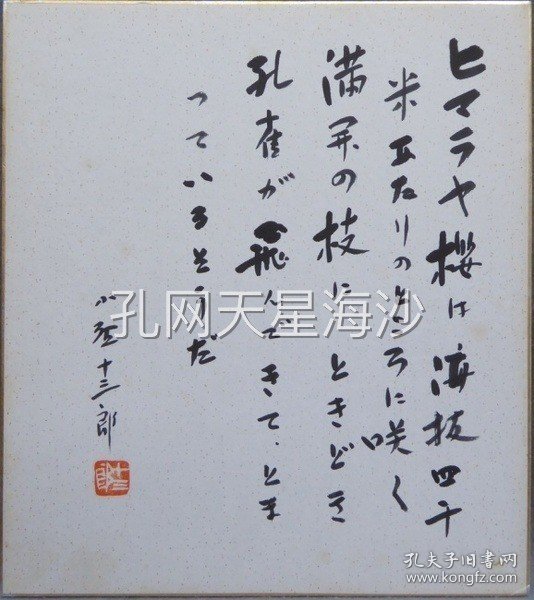 ヒマラヤ櫻は海抜四千
米あたりのところに咲く
満開の枝に、ときどき
孔雀が飛んできて、とま
っているそうだ
小野十三郎
孔网天星海沙
孔夫子旧书网
www.kongfz.com